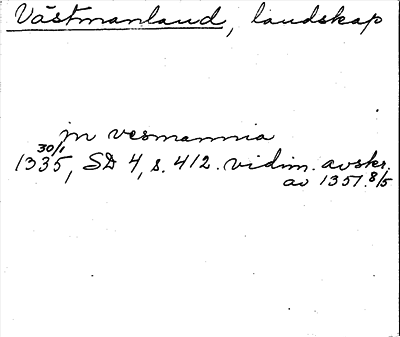 Västmanland, landskap
jn vesmannia
1335 30/1, SD 4, s. 412. vidim. avskr.
av 1351 8/5